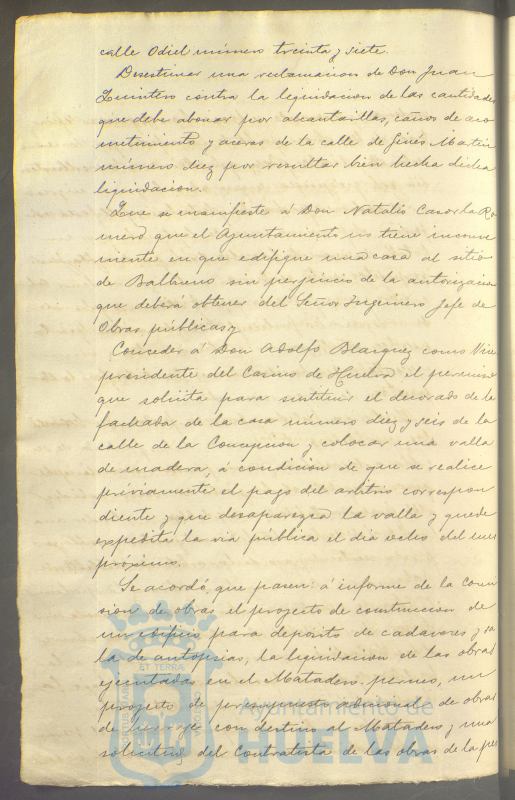 calle Odiel número treinta y siete.
Desestimar una reclamacion de Don Juan
Quintero contra la liquidacion de las cantidades
que debe abonar por alcantarillas, caños de aco
metimiento y aceras de la calle de Ginés Martin
número diez por resultar bien hecha dicha
liquidacion.
Que se manifieste á Don Natalio Casorla Ro
mero que el Ayuntamiento no tiene inconve
niente en que edifique una casa al sitio
de Balbueno sin perjuicio de la autorizacion
que deberá obtener del Señor Ingeniero Jefe de
Obras públicas y
Conceder á Don Adolfo Blazquez como Vice
presidente del Casino de Huelva el permiso
que solicita para sustituir el decorado de la
fachada de la casa número diez y seis de la
calle de la Concepcion y colocar una valla
de madera, á condicion de que se realice
préviamente el pago del arbitrio correspon
diente y que desaparezca la valla y quede
expedita la via pública el dia ocho del mes
próximo.
Se acordó, que pasen á informe de la Comi
sion de obras el proyecto de construccion de
un edificio para depósito de cadáveres y sa
la de autopsias, la liquidacion de las obras
ejecutadas en el Matadero, un
proyecto de presupuesto adicional de obras
de con destino al Matadero y una
solicitud del Contratista de las obras de la pes
ET TERRA
Ayuntamiento de
HUELVA